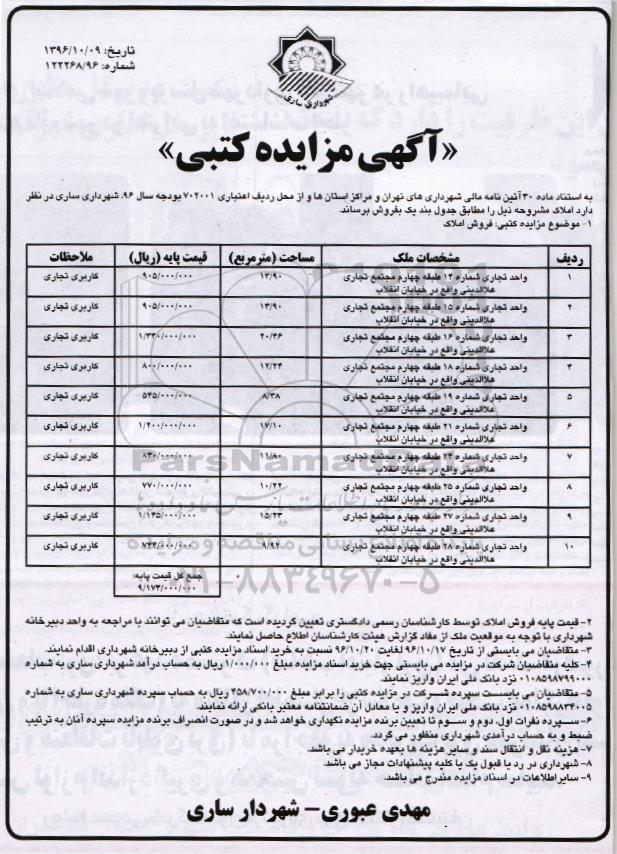 شهرداری ساری
تاریخ: ۱۳۹۶/۱۰/۰۹
شماره: ۱۲۲۲۶۸/۹۶
«آگهی مزایده کتبی»
به استناد ماده ۳۰ آئین نامه مالی شهرداری های تهران و مراکز استان ها و از محل ردیف اعتباری ۷۰۲۰۰۱ بودجه سال ۹۶، شهرداری ساری در نظر
دارد املاک مشروحه ذیل را مطابق جدول بند یک بفروش برساند.
۱- موضوع مزایده کتبی: فروش املاک
ردیف مشخصات ملک مساحت (مترمربع) قیمت پایه (ریال) ملاحظات
۱ واحد تجاری شماره ۱۴ طبقه چهارم مجتمع تجاری ۱۳/۹۰ ۹۰۵/۰۰۰/۰۰۰ کاربری تجاری
علاالدینی واقع در خیابان انقلاب
۲ واحد تجاری شماره ۱۵ طبقه چهارم مجتمع تجاری ۱۳/۹۰ ۹۰۵/۰۰۰/۰۰۰ کاربری تجاری
علاالدینی واقع در خیابان انقلاب
۳ واحد تجاری شماره ۱۶ طبقه چهارم مجتمع تجاری ۲۰/۴۶ ۱/۳۳۰/۰۰۰/۰۰۰ کاربری تجاری
علاالدینی واقع در خیابان انقلاب
۴ واحد تجاری شماره ۱۸ طبقه چهارم مجتمع تجاری ۱۲/۲۴ ۸۰۰/۰۰۰/۰۰۰ کاربری تجاری
علاالدینی واقع در خیابان انقلاب
۵ واحد تجاری شماره ۱۹ طبقه چهارم مجتمع تجاری ۸/۳۸ ۵۴۵/۰۰۰/۰۰۰ کاربری تجاری
علاالدینی واقع در خیابان انقلاب
۶ واحد تجاری شماره ۲۱ طبقه چهارم مجتمع تجاری ۱۷/۱۰ ۱/۲۰۰/۰۰۰/۰۰۰ کاربری تجاری
علاالدینی واقع در خیابان انقلاب
۷ واحد تجاری شماره ۲۴ طبقه چهارم مجتمع تجاری ۱۱/۸۰ ۸۳۰/۰۰۰/۰۰۰ کاربری تجاری
علاالدینی واقع در خیابان انقلاب
۸ واحد تجاری شماره ۲۵ طبقه چهارم مجتمع تجاری ۱۰/۲۲ ۷۷۰/۰۰۰/۰۰۰ کاربری تجاری
علاالدینی واقع در خیابان انقلاب
۹ واحد تجاری شماره ۲۷ طبقه چهارم مجتمع تجاری ۱۵/۲۳ کاربری تجاری
علاالدینی واقع در خیابان انقلاب
۱۰ واحد تجاری شماره ۲۸ طبقه چهارم مجتمع تجاری ۹/۹۲ کاربری تجاری
علاالدینی واقع در خیابان انقلاب
جمع کل قیمت پایه:
۹/۱۷۴/۰۰۰/۰۰۰
ParsNamad
۰۲۱-۸۸۳۴۹۶۷۰-۵
۲- قیمت پایه فروش املاک توسط کارشناسان رسمی دادگستری تعیین گردیده است که متقاضیان می توانند با مراجعه به واحد دبیرخانه
شهرداری با توجه به موقعیت ملک از مفاد گزارش هیئت کارشناسان اطلاع حاصل نمایند.
۳- متقاضیان می بایستی از تاریخ ۹۶/۱۰/۱۷ لغایت ۹۶/۱۰/۲۰ نسبت به خرید اسناد مزایده کتبی از دبیرخانه شهرداری اقدام نمایند.
۴- کلیه متقاضیان شرکت در مزایده می بایستی جهت خرید اسناد مزایده مبلغ ۱/۰۰۰/۰۰۰ ریال به حساب درآمد شهرداری ساری به شماره
۰۱۰۸۵۹۸۷۹۹۰۰۰ نزد بانک ملی ایران واریز نمایند.
۵- متقاضیان می بایست سپرده شرکت در مزایده کتبی را برابر مبلغ ۴۵۸/۷۰۰/۰۰۰ ریال به حساب سپرده شهرداری ساری به شماره
۰۱۰۸۵۹۸۸۳۴۰۰۵ نزد بانک ملی ایران واریز و یا معادل آن ضمانتنامه معتبر بانکی ارائه نمایند.
۶- سپرده نفرات اول، دوم و سوم تا تعیین برنده مزایده نگهداری خواهد شد و در صورت انصراف برنده مزایده سپرده آنان به ترتیب
ضبط و به حساب درآمدی شهرداری منظور می گردد.
۷- هزینه نقل و انتقال سند و سایر هزینه ها بعهده خریدار می باشد.
۸- شهرداری در رد یا قبول یک یا کلیه پیشنهادات مجاز می باشد.
۹- سایر اطلاعات در اسناد مزایده مندرج می باشد.
مهدی عبوری - شهردار ساری